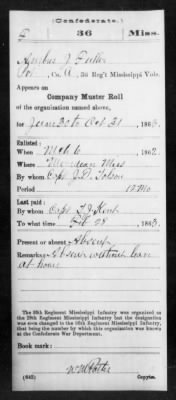 (Confederate.)
F 36 Miss.
J. Fuller
Co. A, 36 Reg't Mississippi Vols.
Appears on
Company Muster Roll
of the organization named above,
for June 30 to Oct 31, 1863.
Enlisted:
When Mch 6, 1862.
Where Meridian Miss
By whom Capt J.D.
Period 12 Mo
Last paid:
By whom Capt
To what time Feb 28, 1863.
Present or absent Absent
Remarks: Absent without leave
at home
The 36th Regiment Mississippi Infantry was organized as
the Regiment Mississippi Infantry but the designation
was even changed to the 36th Regiment Mississippi Infantry,
that being the number by which this organization was known
at the Confederate War Department.
Book mark:
(642) Copyist.